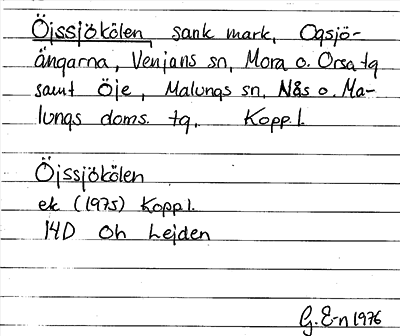 Öjssjökölen, sank mark, Ogsjö-
ängarna, Venjans sn, Mora o. Orsa tg
samt Öje, Malungs sn, Nås o. Ma-
lungs doms. tg. Koppl.
Öjssjökölen
ek (1975) Koppl.
14D Oh Lejden
G. E-n 1976